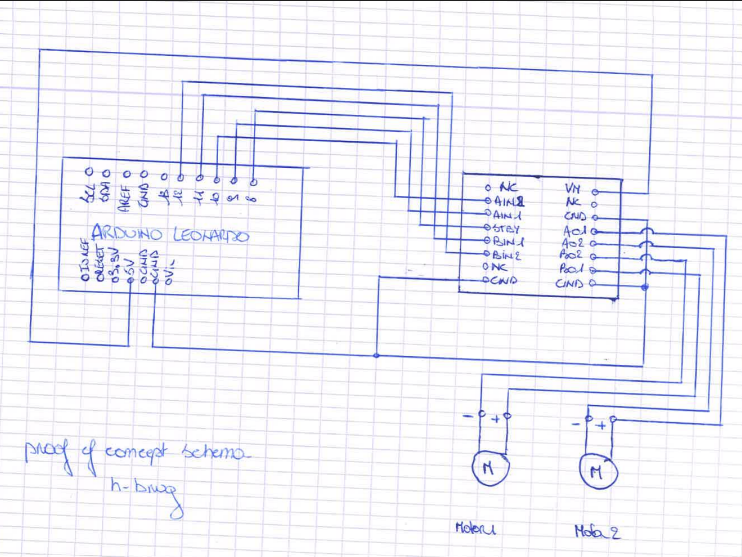 SCL
SDA
AREF
GND
13
12
11
10
9
8
ARDUINO LEONARDO
IOREF
RESET
3.3V
5V
GND
GND
Vin
NC
AIN2
AIN1
STBY
BIN1
BIN2
NC
GND
VM
NC
GND
AO1
AO2
BO2
BO1
GND
- +
- +
M
M
Motor1
Motor2
proof of concept schema
h-brug